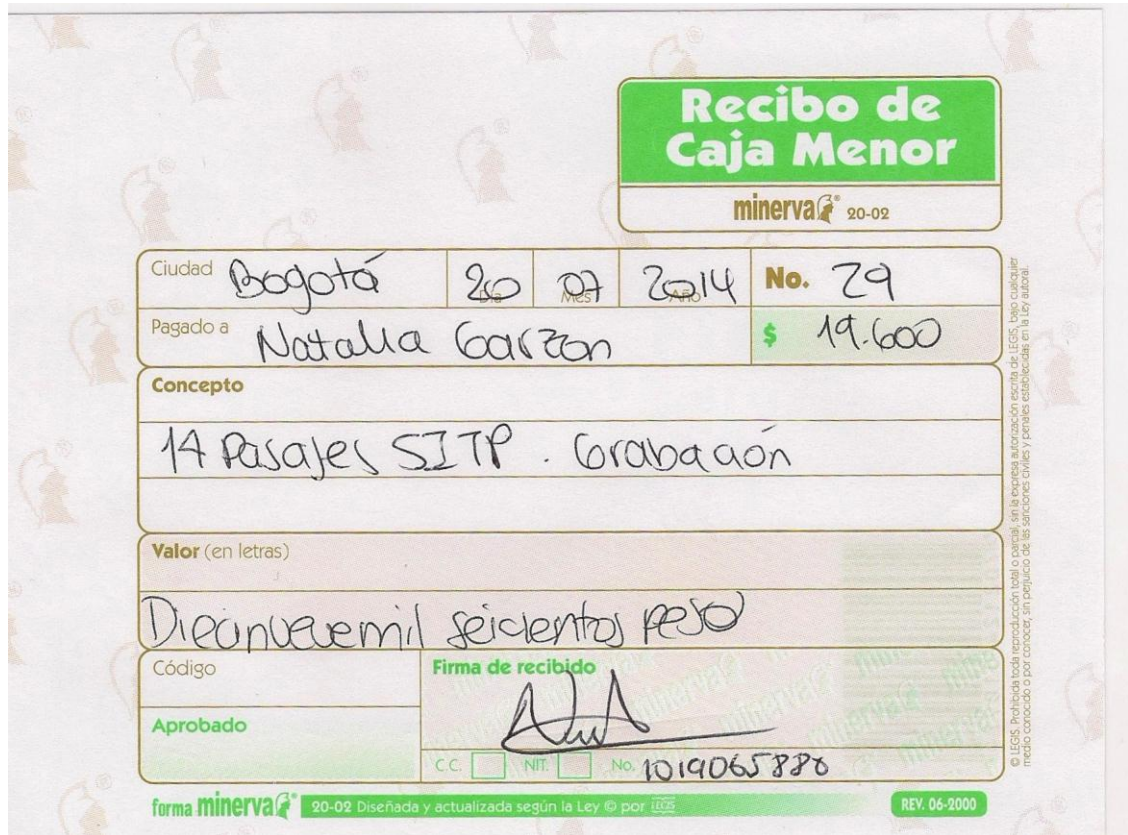 Recibo de
Caja Menor
minerva® 20-02
Ciudad Bogotá 20 Día 07 Mes 2014 Año No. 29
Pagado a Natalia Garzon $ 19.600
Concepto
14 Pasajes SITP. Grabación
Valor (en letras)
Diecinuevemil seicientos peso
Código
Firma de recibido
Aprobado
C.C. NIT. No. 1019065886
forma minerva® 20-02 Diseñada y actualizada según la Ley © por LEGIS REV. 06-2000
© LEGIS. Prohibida toda reproducción total o parcial, sin la expresa autorización escrita de LEGIS, bajo cualquier
medio conocido o por conocer, sin perjuicio de las sanciones civiles y penales establecidas en la Ley autoral.